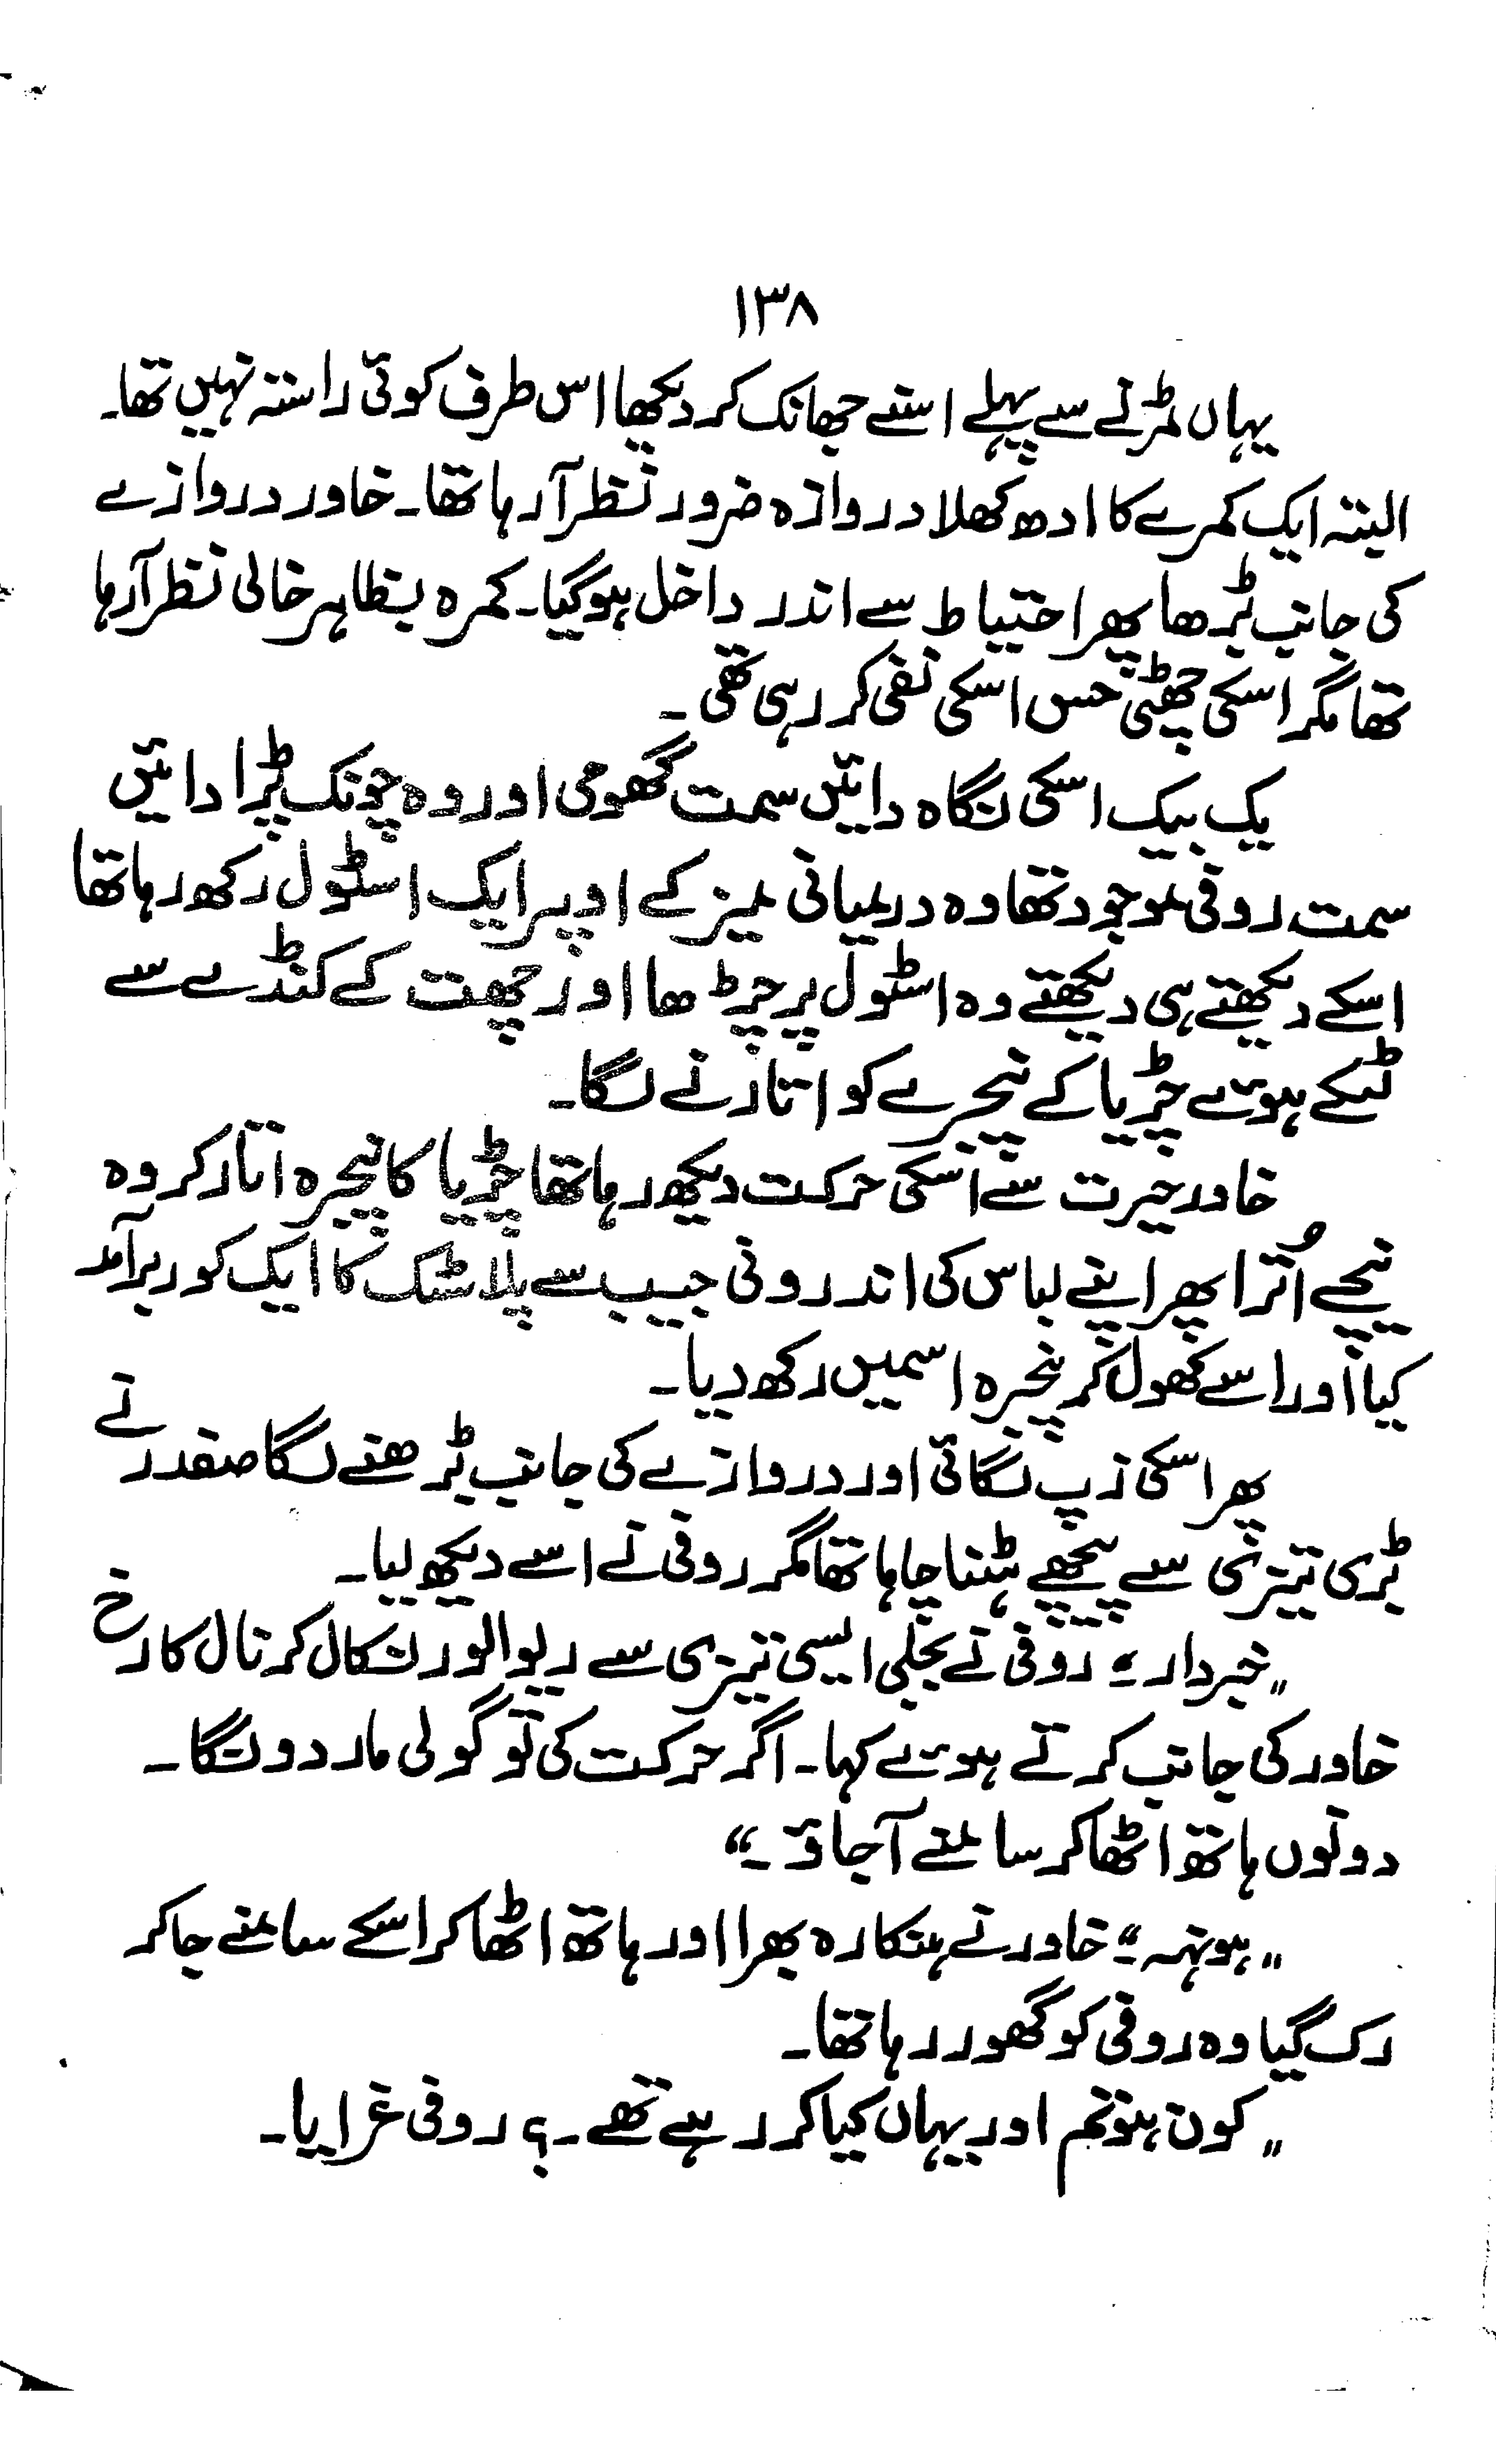 ۱۳۸
یہاں مڑنے سے پہلے اسنے جھانک کر دیکھا اس طرف کوئی راستہ نہیں تھا۔
البتہ ایک کمرے کا ادھ کھلا دروازہ ضرور نظر آرہا تھا۔ خاور دروازے
کی جانب بڑھا پھر احتیاط سے اندر داخل ہوگیا۔ کمرہ بظاہر خالی نظر آرہا
تھا مگر اسکی چھٹی حس اسکی نفی کر رہی تھی۔
یک بیک اسکی نگاہ دائیں سمت گھومی اور وہ چونک پڑا دائیں
سمت روفی موجود تھا وہ درمیانی میز کے اوپر ایک اسٹول رکھ رہا تھا
اسکے دیکھتے ہی دیکھتے وہ اسٹول پر چڑھا اور چھت کے کنڈے سے
ٹنکے ہوئے چڑیا کے پنجرے کو اتارنے لگا۔
خاور حیرت سے اسکی حرکت دیکھ رہا تھا چڑیا کا پنجرہ اتار کر وہ
نیچے اُترا پھر اپنے لباس کی اندرونی جیب سے پلاسٹک کا ایک کور برآمد
کیا اور اسے کھول کر پنجرہ اسمیں رکھ دیا۔
پھر اسکی زپ لگائی اور دروازے کی جانب بڑھنے لگا صفدر نے
بڑی تیزی سے پیچھے ہٹنا چاہا تھا مگر روفی نے اسے دیکھ لیا۔
”خبردار۔“ روفی نے بجلی ایسی تیزی سے ریوالور نکال کر نال کا رخ
خاور کی جانب کرتے ہوئے کہا۔ اگر حرکت کی تو گولی مار دونگا۔
دونوں ہاتھ اٹھا کر سامنے آجاؤ۔“
”ہونہہ۔“ خاور نے ہنکارہ بھرا اور ہاتھ اٹھا کر اسکے سامنے جا کر
رک گیا وہ روفی کو گھور رہا تھا۔
”کون ہو تم اور یہاں کیا کر رہے تھے۔؟ روفی غرایا۔